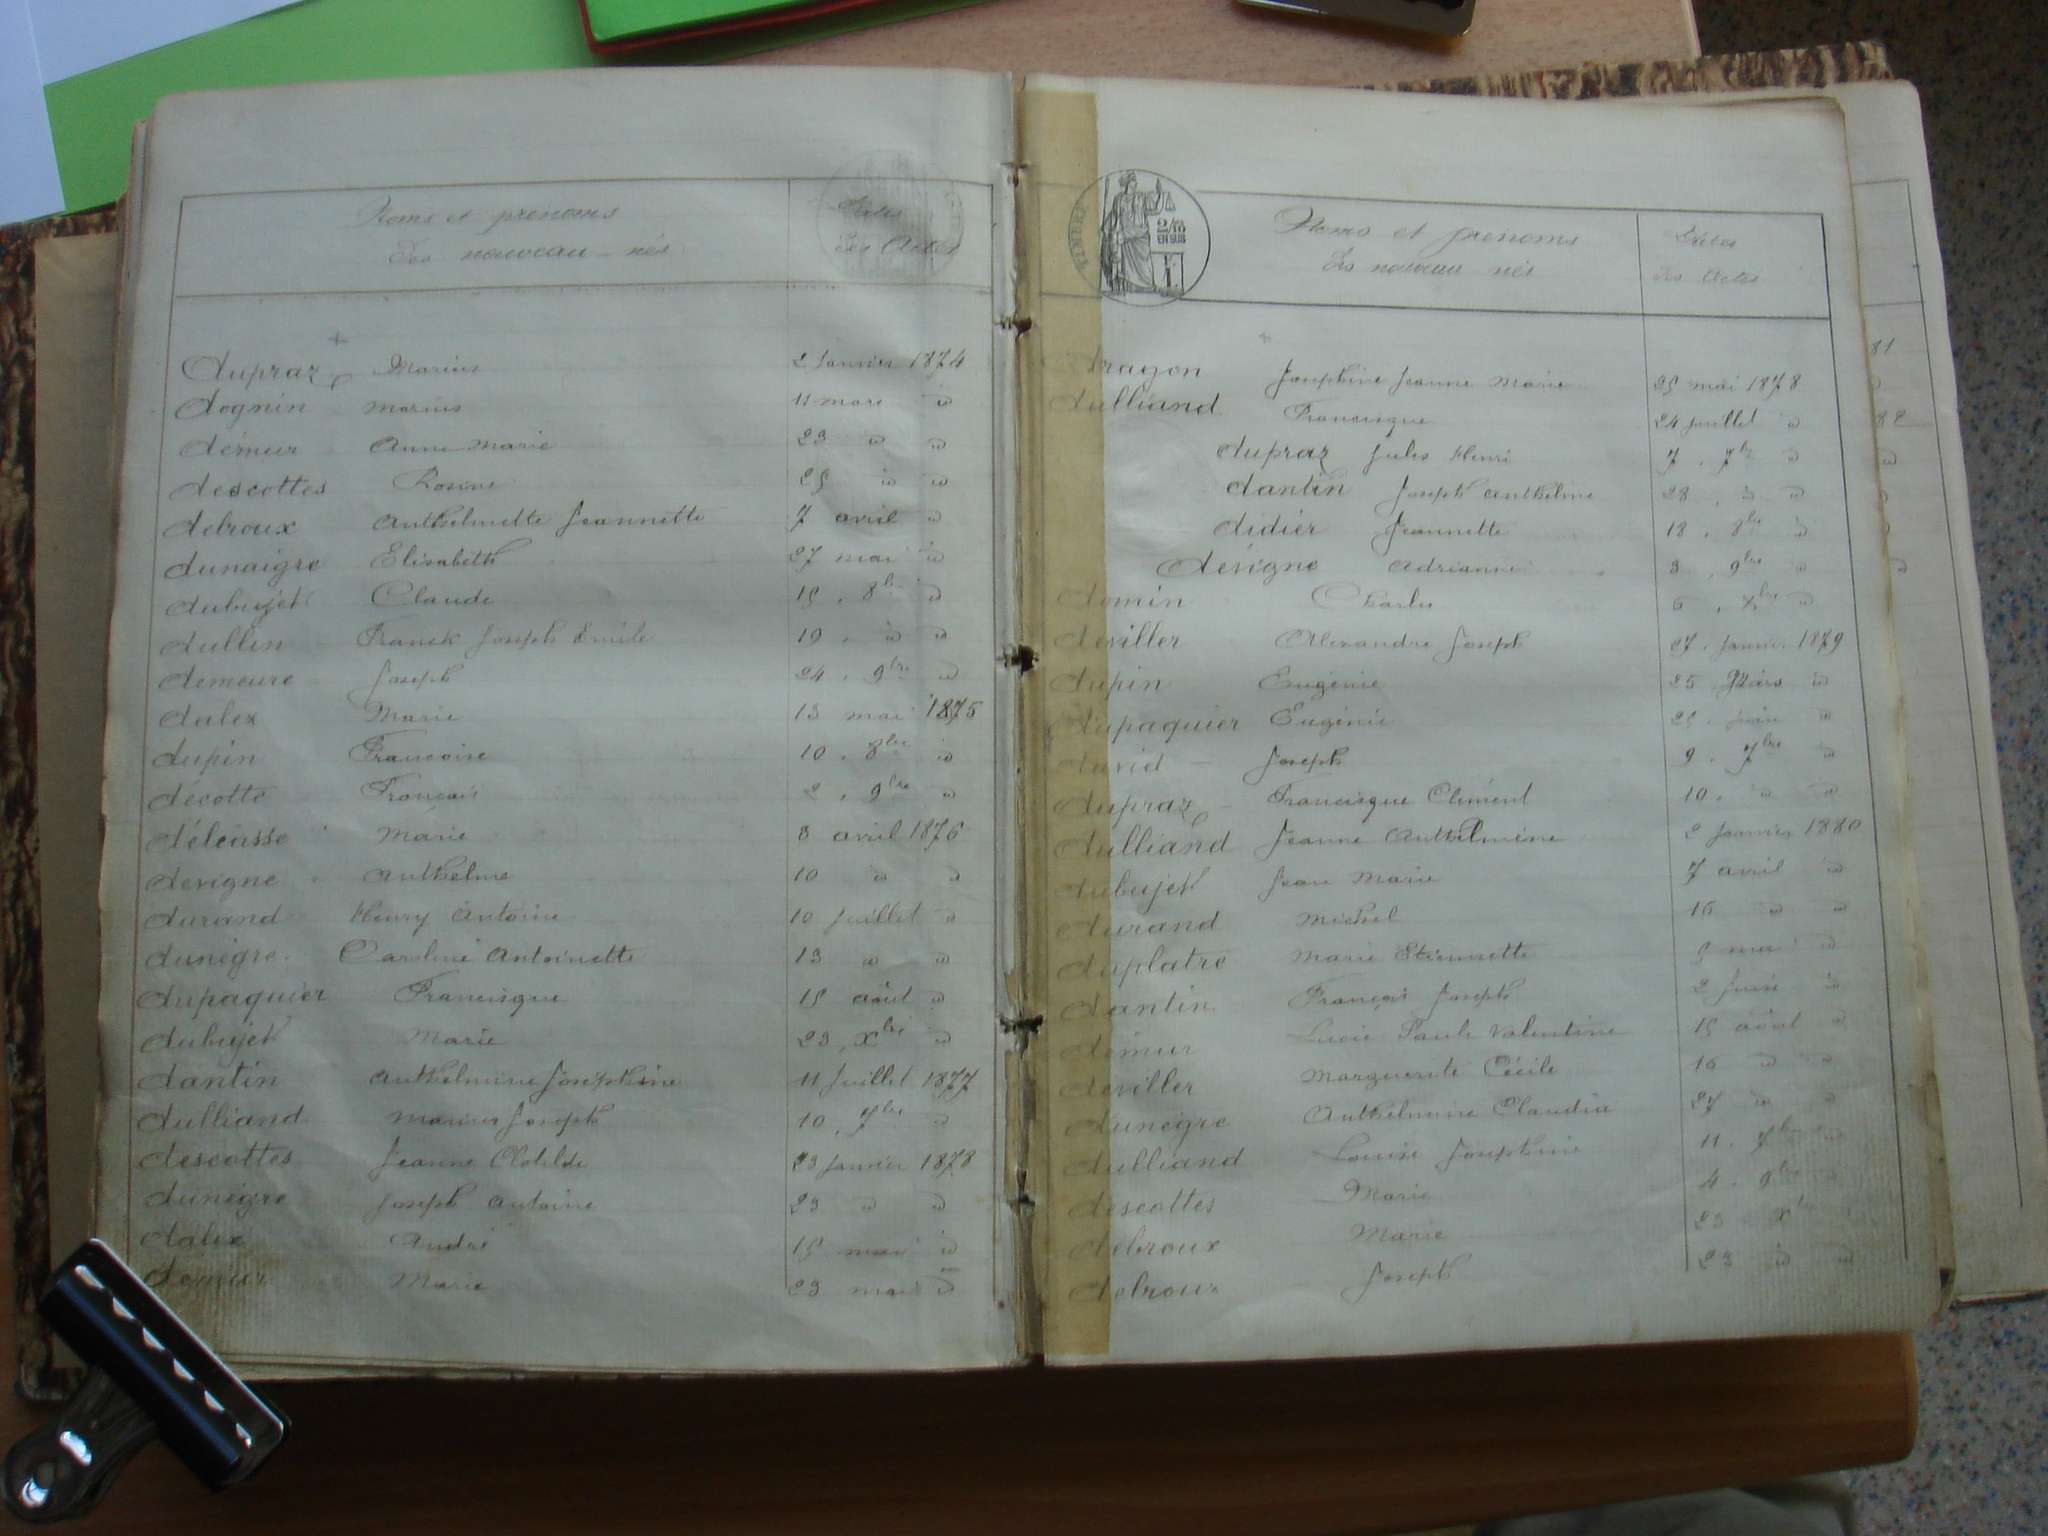 Noms et prénoms
des nouveau-nés
Dates
des Actes
Dupraz Marius 2 Janvier 1874
Dognin Marius 11 mars id
Démeur Anne Marie 23 id id
Descottes Rosine 25 id id
Debroux Anthelmette Jeannette 7 avril id
Dunaigre Elisabeth 27 mai id
Dubujet Claude 15. 8bre id
Dullin Franck Joseph Emile 19. id id
Demeure Joseph 24. 9bre id
Dalex Marie 13 mai 1875
Dupin Françoise 10. 8bre id
Décotte François 2. 9bre id
Déléasse Marie 3 avril 1876
Devigne Anthelme 10 id id
Durand Henry Antoine 10 Juillet id
Dunégre Caroline Antoinette 13 id id
Dupaquier Francisque 15 août id
Dubujet Marie 23. Xbre id
Dantin Anthelmine Joséphine 11 Juillet 1877
Dulliand Marius Joseph 10. 7bre id
Descottes Jeanne Clotilde 23 Janvier 1878
Dunégre Joseph Antoine 23 id id
Dalex André 15 mai id
Demeur Marie 23 mai id
TIMBRE
Noms et prénoms
des nouveau nés
Dates
des Actes
Dragon Joséphine Jeanne Marie 25 mai 1878
Dulliand Francisque 24 juillet id
Dupraz Jules Henri 7. 7bre id
Dantin Joseph Anthelme 28. id id
Didier Jeannette 18. 8bre id
Dévigne Adrienne 3. 9bre id
Domin Charles 6. Xbre id
Deviller Alexandre Joseph 27. Janvier 1879
Dupin Eugénie 25 Mars id
Dupaquier Eugénie 25. juin id
David Joseph 9. 7bre id
Dupraz Francisque Clément 10. id id
Dulliand Jeanne Anthelmine 2 Janvier 1880
Dubujet Jean Marie 7 avril id
Durand Michel 16 id id
Duplatre Marie Etiennette 5 mai id
Dantin François Joseph 2 Juin id
Démeur Lucie Paule Valentine 15 août id
Deviller Marguerite Cécile 16 id id
Dunégre Anthelmine Claudia 27 id id
Dulliand Louise Joséphine 11. 7bre id
Descottes Marie 4. 9bre id
Debroux Marie 23 Xbre
Debroux Joseph 23 id id
81
82